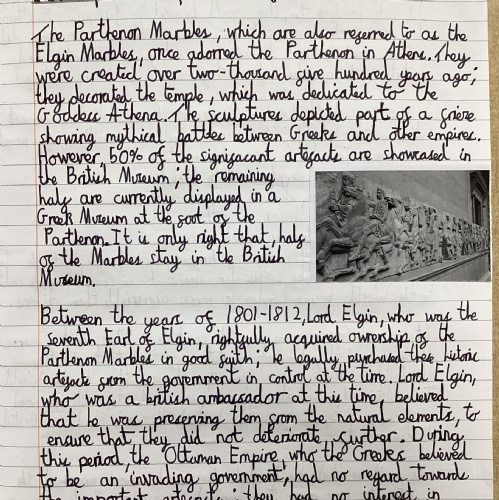 The Parthenon Marbles, which are also reserred to as the
Elgin Marbles, once adorned the Parthenon in Athens. They
were created over two-thousand five hundred years ago;
they decorated the temple, which was dedicated to the
Goddess Athena. The sculptures depicted part of a frieze
showing mythical battles between Greeks and other empires.
However, 50% of the signifacant artefacts are showcased in
the British Museum; the remaining
half are currently displayed in a
Greek Museum at the foot of the
Parthenon. It is only right that, half
of the Marbles stay in the British
Museum.
Between the years of 1801-1812, Lord Elgin, who was the
seventh Earl of Elgin, rightfully acquired ownership of the
Parthenon Marbles in good faith; he legally purchased these historic
artefacts from the government in control at the time. Lord Elgin,
who was a british ambassador at this time, believed
that he was preserving them from the natural elements, to
ensure that they did not deteriorate further. During
this period, the Ottuman Empire, who the Greeks believed
to be an invading government, had no regard towards
the important artefacts; they had no interest in